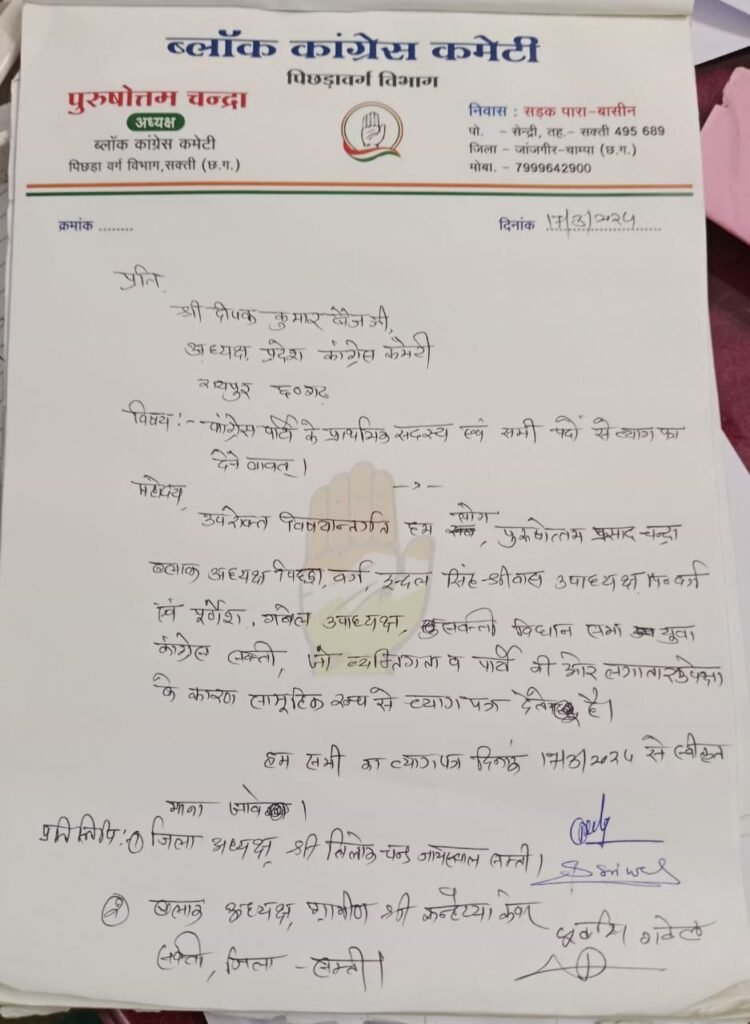 ब्लॉक कांग्रेस कमेटी
पिछड़ावर्ग विभाग
पुरुषोत्तम चन्द्रा
अध्यक्ष
ब्लॉक कांग्रेस कमेटी
पिछड़ा वर्ग विभाग,सक्ती (छ.ग.)
निवास : सड़क पारा-बासीन
पो. - सेन्द्री, तह.- सक्ती 495 689
जिला - जांजगीर-चाम्पा (छ.ग.)
मोबा. - 7999642900
क्रमांक ........
दिनांक 17/3/२०२५
प्रति,
श्री दीपक कुमार बैज जी,
अध्यक्ष प्रदेश कांग्रेस कमेटी
रायपुर छ०गढ़
विषय :- कांग्रेस पार्टी के प्राथमिक सदस्य एवं सभी पदों से त्याग
देने बावत् ।
महोदय,
उपरोक्त विषयान्तर्गत हम लोग, पुरुषोत्तम प्रसाद चन्द्रा
ब्लाक अध्यक्ष पिछड़ा वर्ग, इन्दल सिंह-श्रीवास उपाध्यक्ष वर्ग
एवं गबेल उपाध्यक्ष, सक्ती विधान सभा युवा
कांग्रेस सक्ती, जो व्यक्तिगत व पार्टी की ओर लगातार उपेक्षा
के कारण सामूहिक रूप से त्याग पत्र देते है।
हम सभी का त्यागपत्र दिनांक 17/3/२०२५ से स्वीकृत
माना जावे ।
प्रतिलिपि:- ① जिला अध्यक्ष, श्री त्रिलोक चन्द जायसवाल सक्ती ।
② ब्लाक अध्यक्ष, ग्रामीण श्री कन्हैय्या कंवर
सक्ती, जिला - सक्ती ।
गबेल